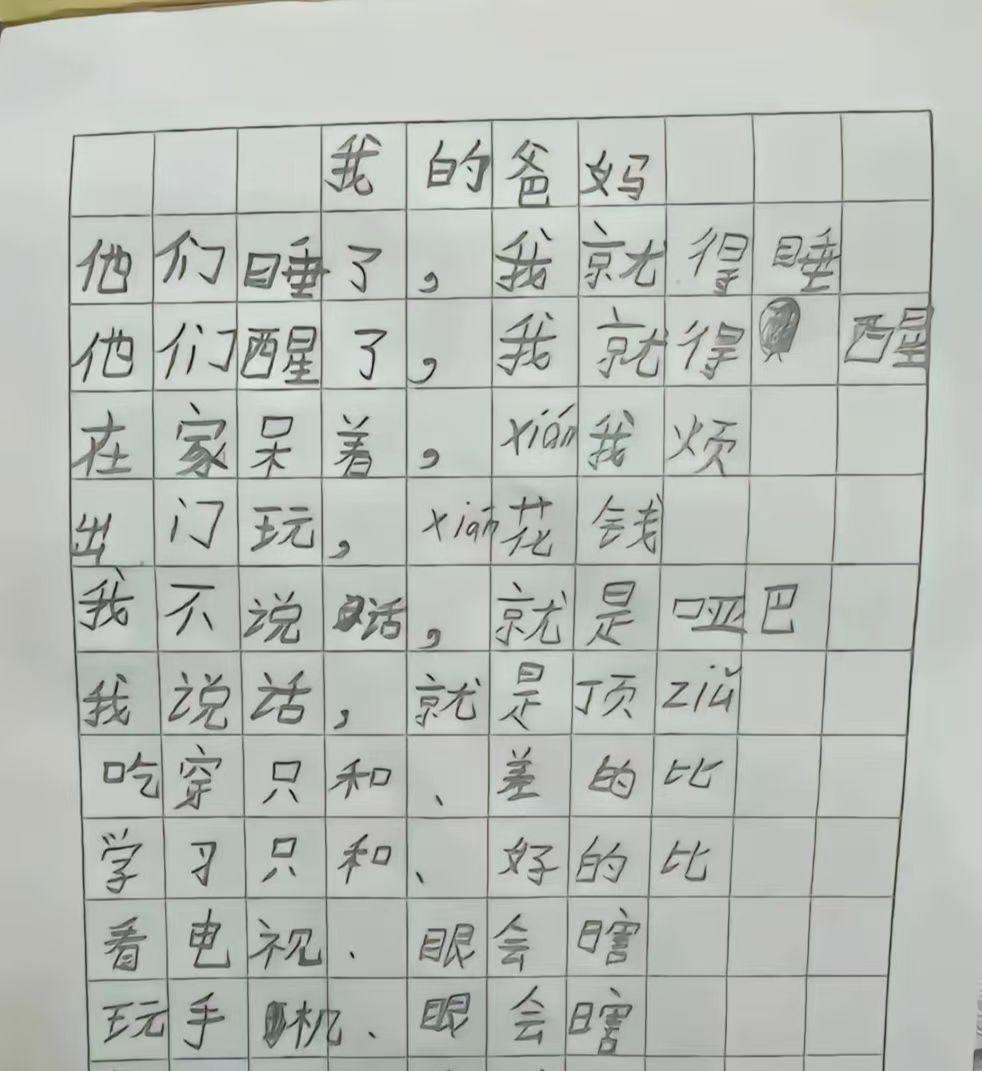 我的爸妈
他们睡了，我就得睡
他们醒了，我就得醒
在家呆着，xián我烦
出门玩，xián花钱
我不说话，就是哑巴
我说话，就是顶ziǔ
吃穿只和、差的比
学习只和、好的比
看电视、眼会瞎
玩手机、眼会瞎